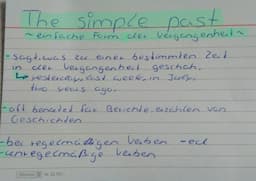 The simple past
~ einfache Form der Vergangenheit ~
- Sagt was zu einer bestimmten Zeit
in der Vergangenheit geschah.
↳ yesterday, last week, in July,
two years ago.
- oft benutzt für Berichte, erzählen von
Geschichten
- bei regelmäßigen Verben -ed
- unregelmäßige Verben